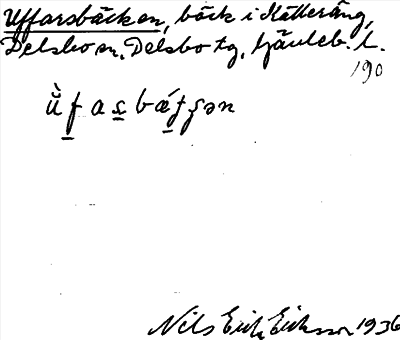 Uffarsbäcken, bäck i Hätteräng,
Delsbo sn, Delsbo tg, Gävleb. l.
190
ù̈f̲as̲bǽf̲ʂən
Nils Erik Eriksson 1936